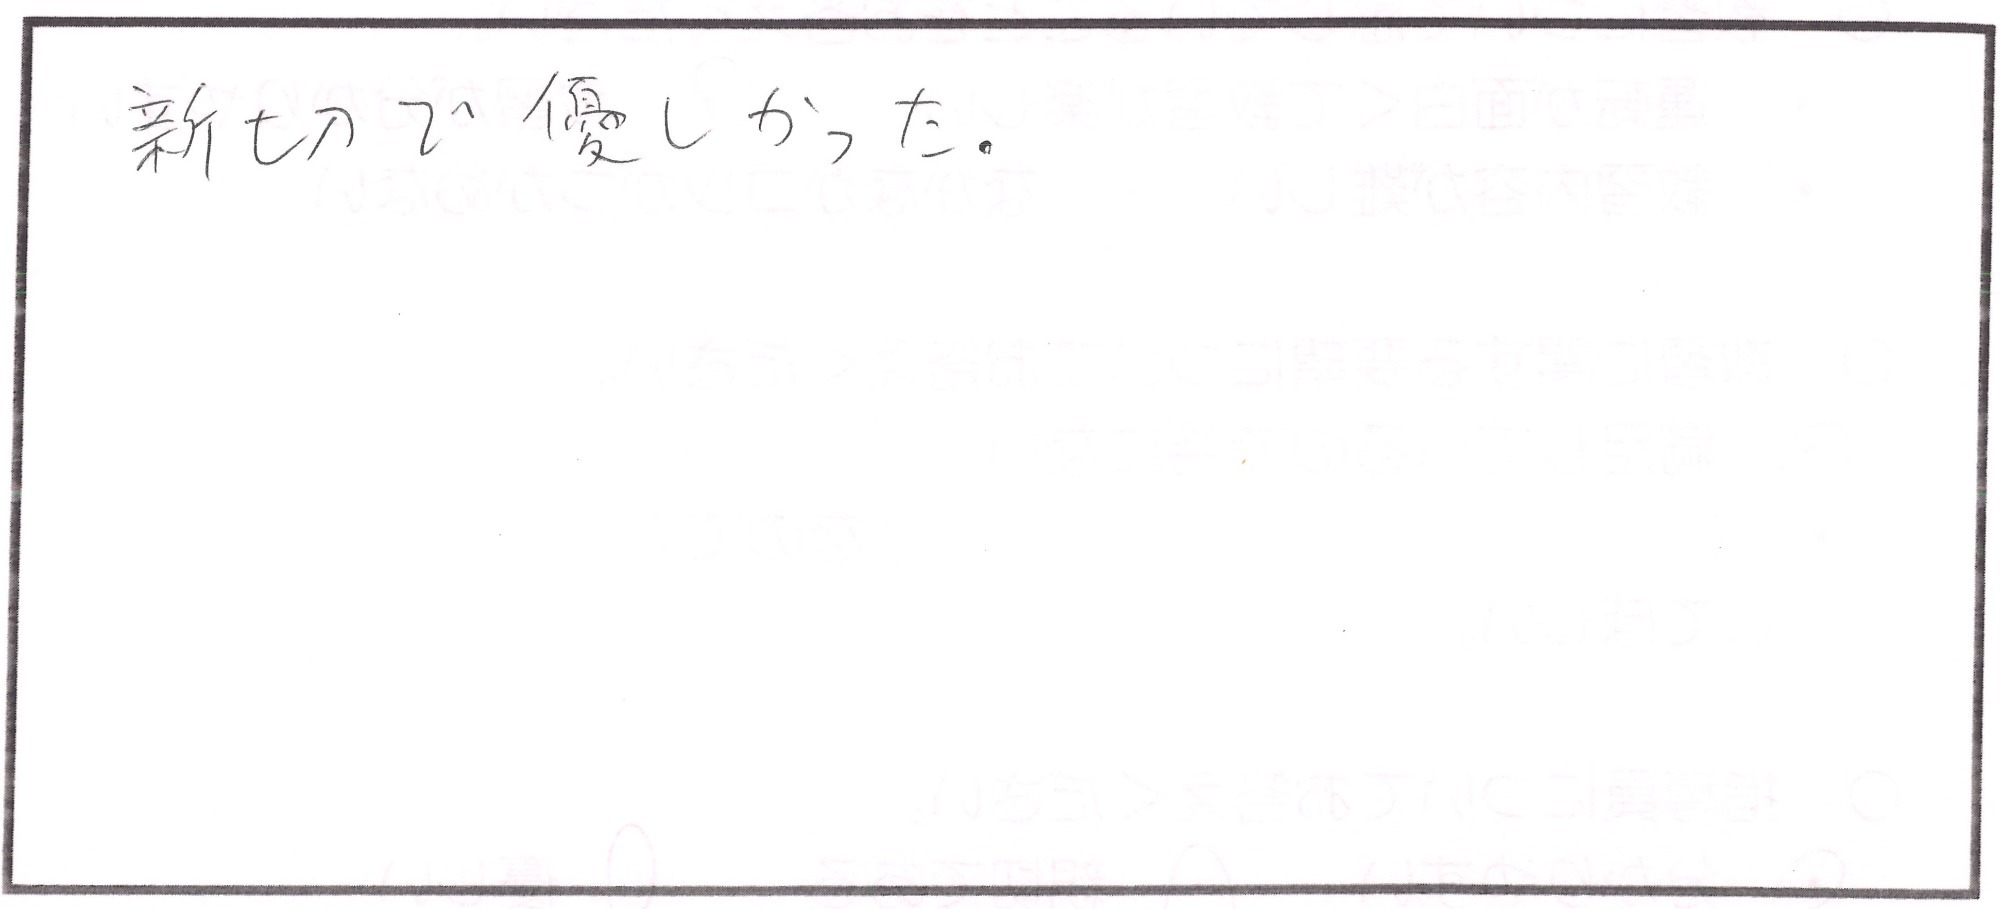 新切で優しかった.